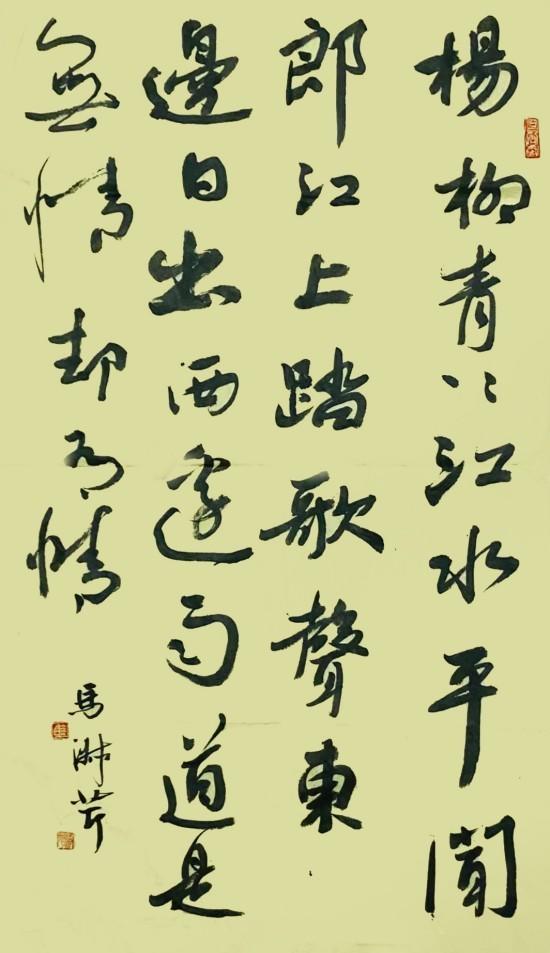 楊柳青〻江水平聞
郎江上踏歌聲東
邊日出西邊雨道是
無情却有情
馬淑芹